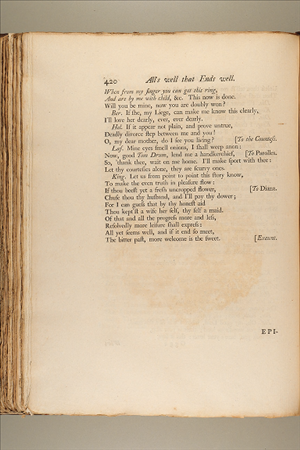 420 All's well that Ends well.
When from my finger you can get this ring,
And are by me with child, &c. This now is done.
Will you be mine, now you are doubly won?
Ber. If she, my Liege, can make me know this clearly,
I'll love her dearly, ever, ever dearly.
Hel. If it appear not plain, and prove untrue,
Deadly divorce step between me and you!
O, my dear mother, do I see you living? [To the Countess.
Laf. Mine eyes smell onions, I shall weep anon:
Now, good Tom Drum, lend me a handkerchief, [To Parolles.
So, thank thee, wait on me home. I'll make sport with thee:
Let thy courtesies alone, they are scurvy ones.
King. Let us from point to point this story know,
To make the even truth in pleasure flow:
If thou beest yet a fresh uncropped flower, [To Diana.
Chuse thou thy husband, and I'll pay thy dower;
For I can guess that by thy honest aid
Thou kept'st a wife her self, thy self a maid.
Of that and all the progress more and less,
Resolvedly more leisure shall express:
All yet seems well, and if it end so meet,
The bitter past, more welcome is the sweet. [Exeunt.
EPI-